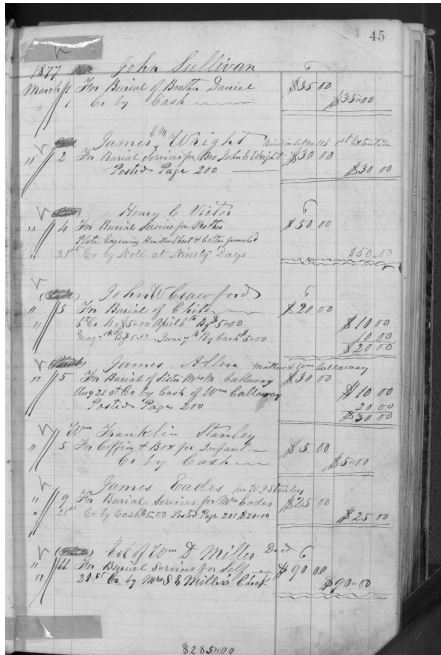 45
1877 John Sullivan
March 1 For Burial of Brother Daniel $35 00
Cr by Cash $35.00
James Wright
" 2 For Burial Services for Bro John E Wright $30 00
Posted Page 200 $30 00
Henry C Victor
" 4 For Burial Services for Mother $50 00
Plate Engraving Handles Sheet & Cotton furnished
" 21st Cr by Note at Ninety Days $50.00
John W Crawford
" 5 For Burial of Child $20 00
$10 00
10 00
$20 00
James Allen
" 5 For Burial of Sister Callaway $30 00
Aug 21st Cr by Cash of Wm Callaway $10 00
20 00
Posted Page 200 $30 00
Wm Franklin Stanley
" 5 For Coffin & Box for Infant $5 00
Cr by Cash $5.00
James Eades for W J Stanley
" 9 For Burial Services for Mrs Eades $25 00
" 21st Cr by Cash $5.00 Posted Page 201 $20.00 $25 00
Est of Wm D Miller Decd
" 11 For Burial Services for Self $90 00
" 28st Cr by Mrs S E Millers Check $90.00
$285.00